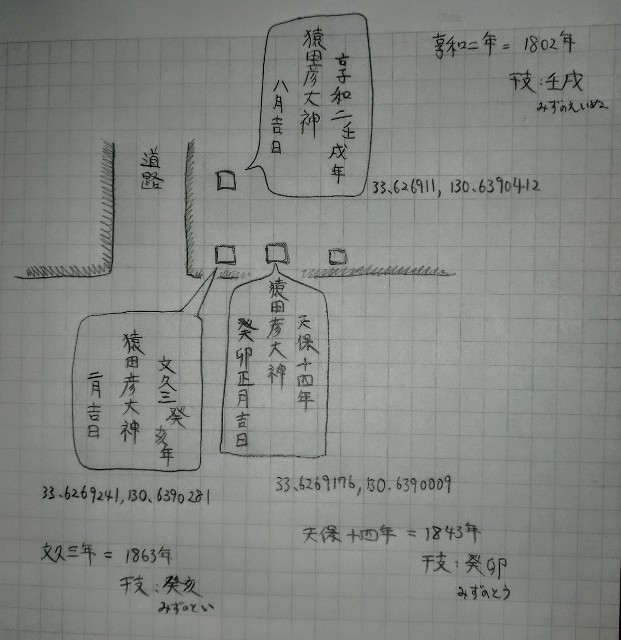 享和二年 = 1802年
干支:壬戌
みずのえいぬ
享和二壬戌年
猿田彦大神
八月吉日
道路
33.626911, 130.6390412
天保十四年
猿田彦大神
癸卯正月吉日
文久三癸亥年
猿田彦大神
二月吉日
33.6269241, 130.6390281
33.6269176, 130.6390009
文久三年 = 1863年
干支:癸亥
みずのとい
天保十四年 = 1843年
干支:癸卯
みずのとう